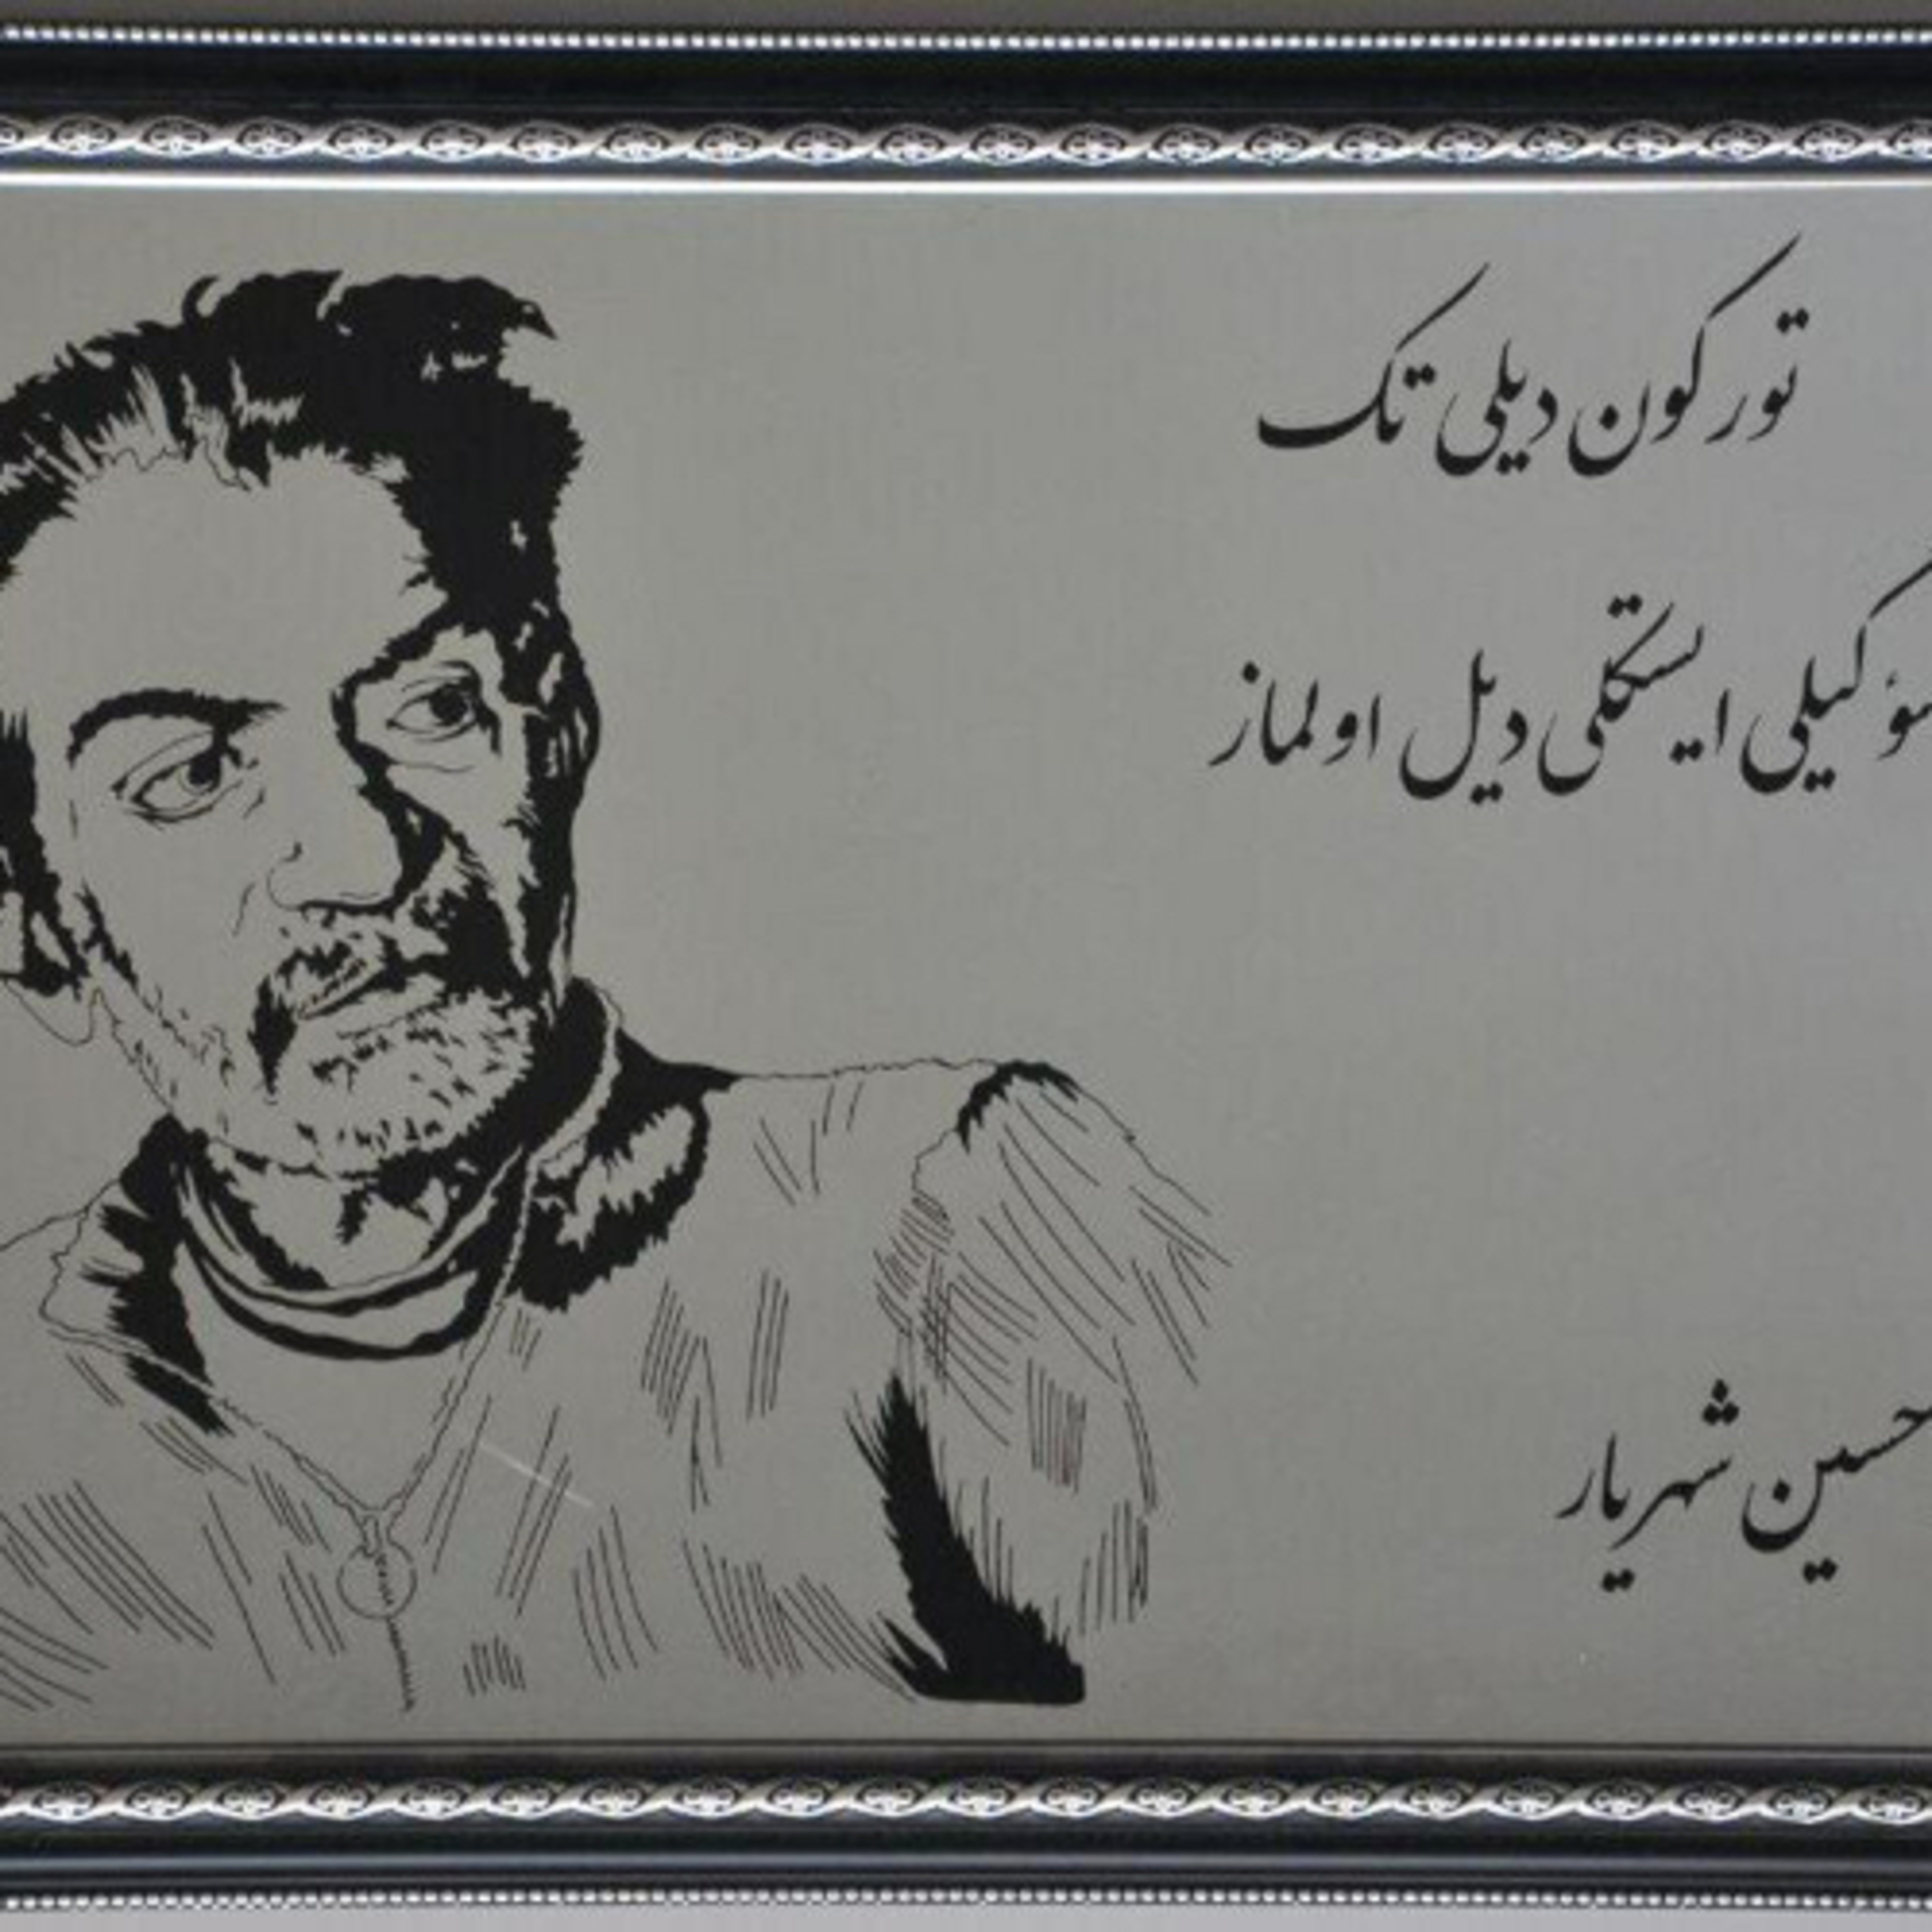 تورکون دیلی تک
سؤگیلی ایستکلی دیل اولماز
حسین شهریار